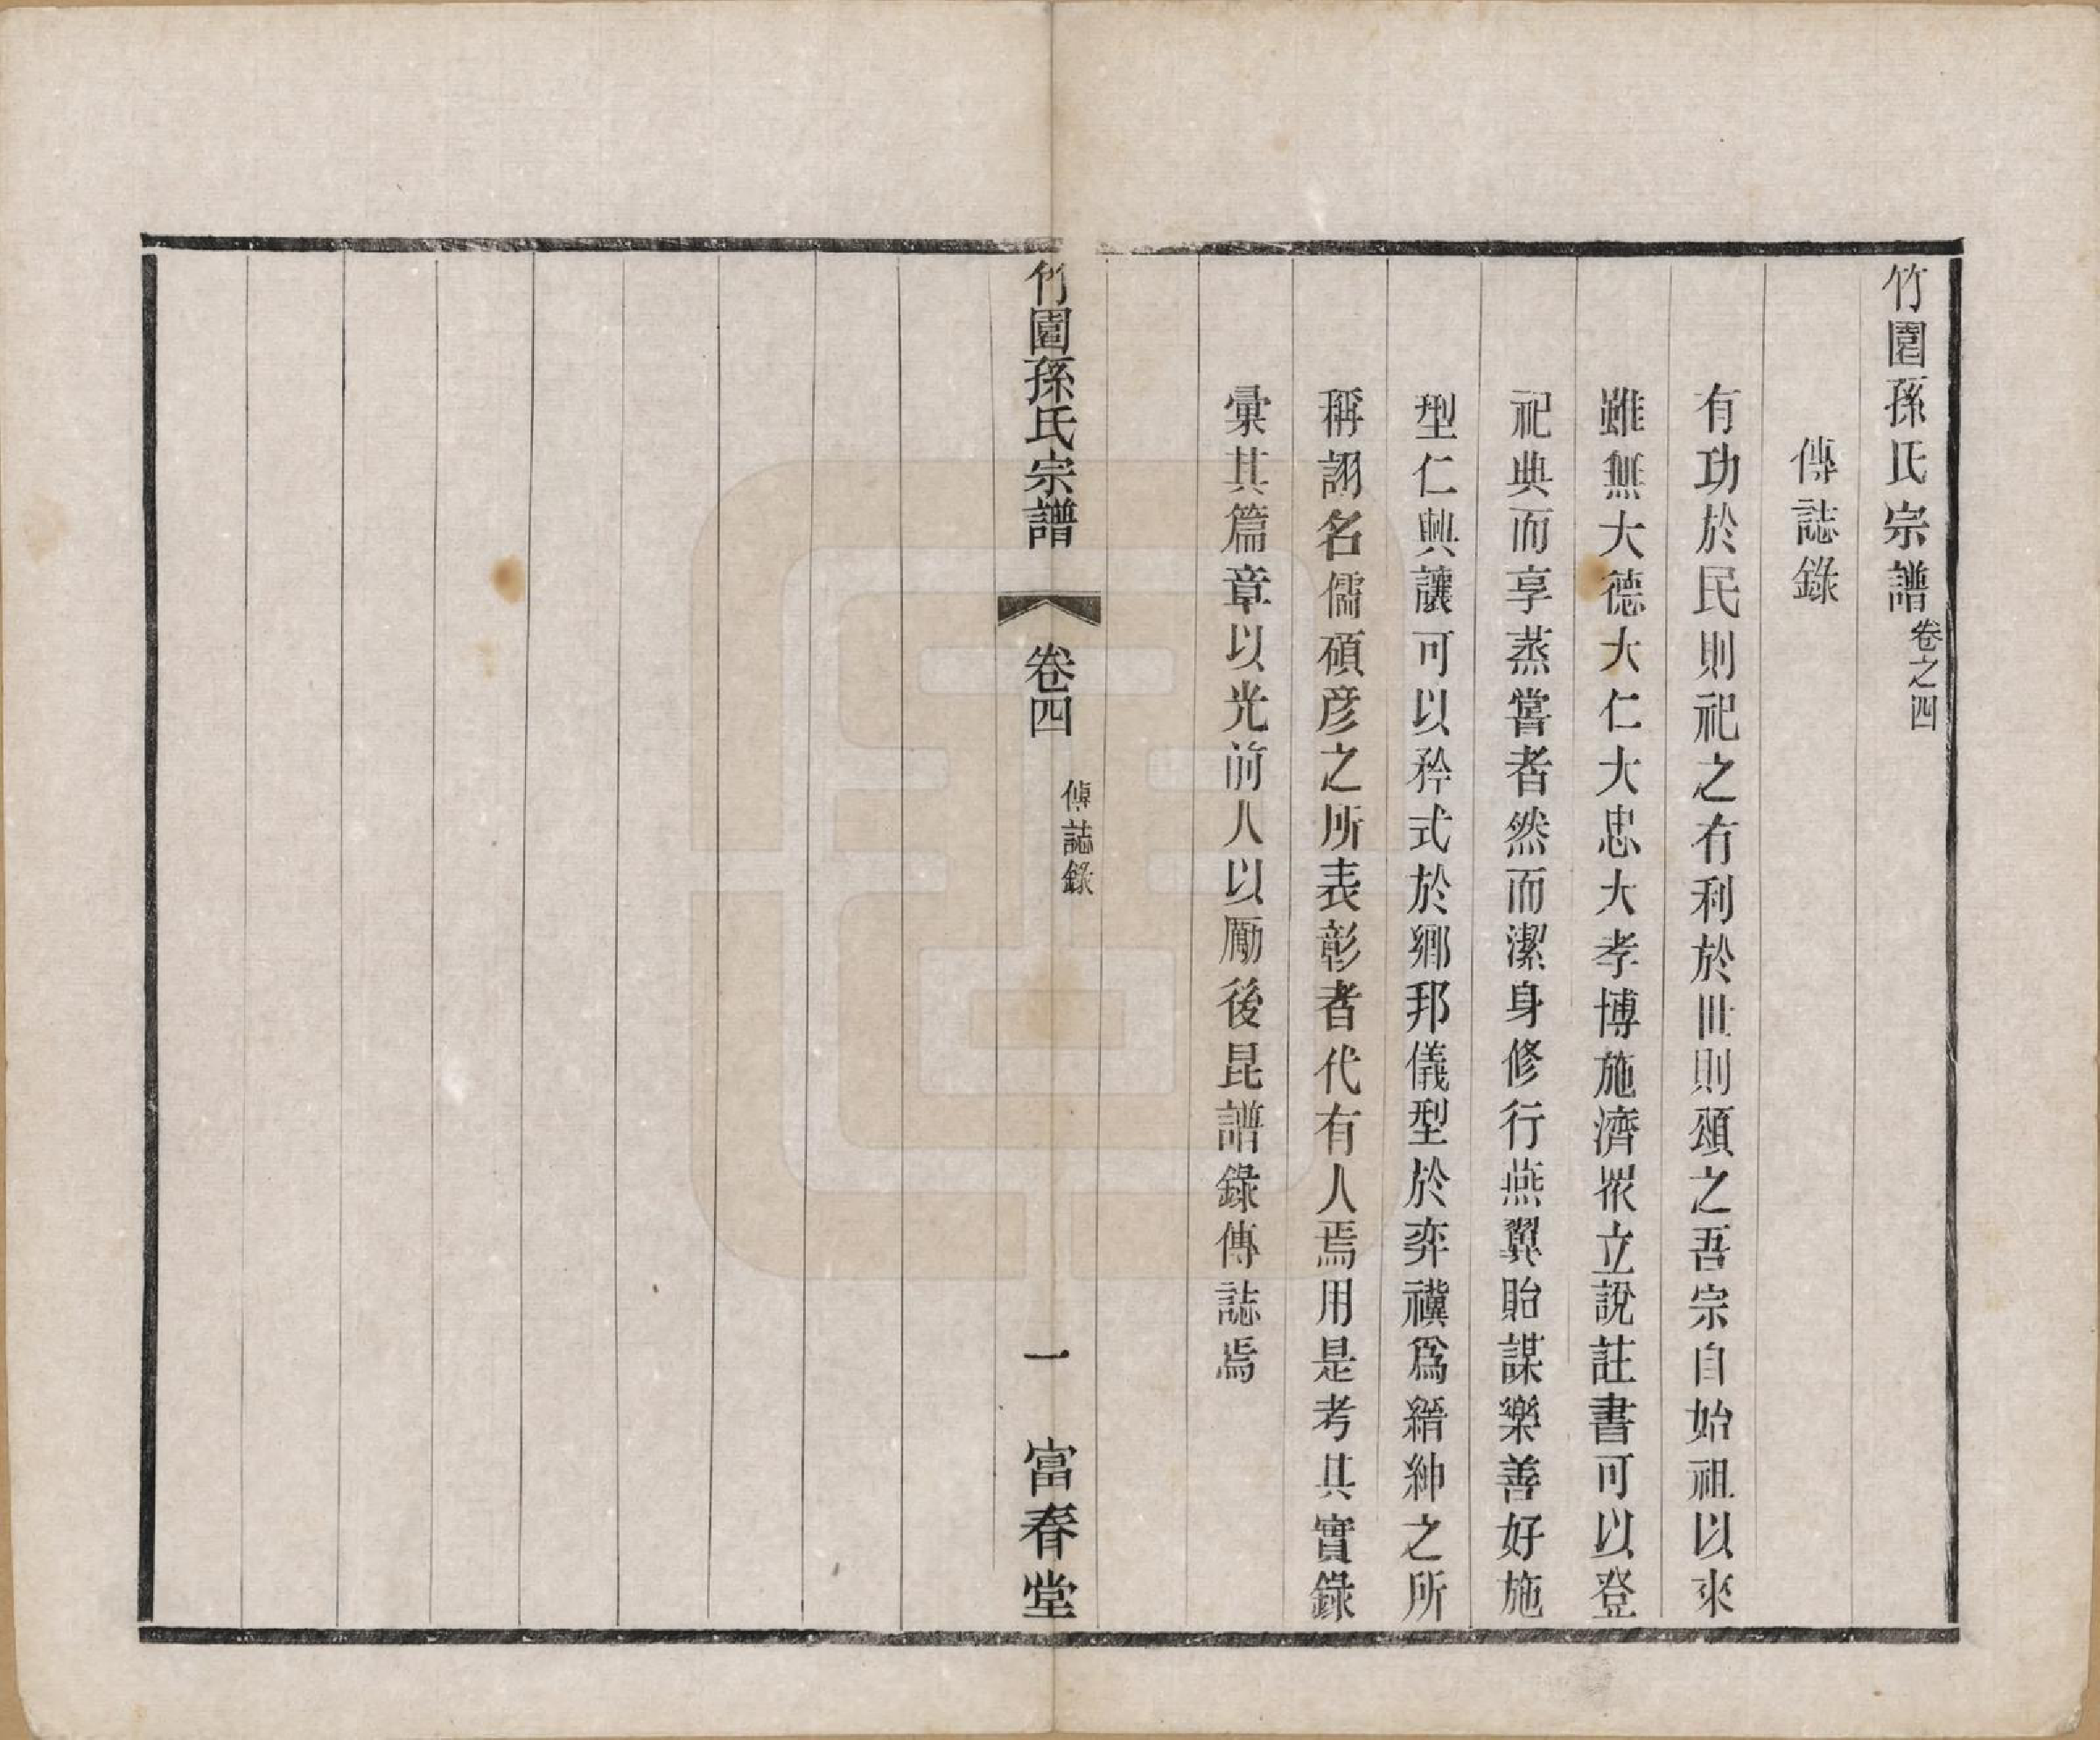 竹園孫氏宗譜卷之四
傳誌錄
有功於民則祀之有利於世則頌之吾宗自始祖以來
雖無大德大仁大忠大孝博施濟眾立說註書可以登
祀典而享蒸嘗者然而潔身修行燕翼貽謀樂善好施
型仁興讓可以矜式於鄉邦儀型於奕禩為縉紳之所
稱詡名儒碩彥之所表彰者代有人焉用是考其實錄
彙其篇章以光前人以勵後昆譜錄傳誌焉
竹園孫氏宗譜 卷四 傳誌錄 一 富春堂